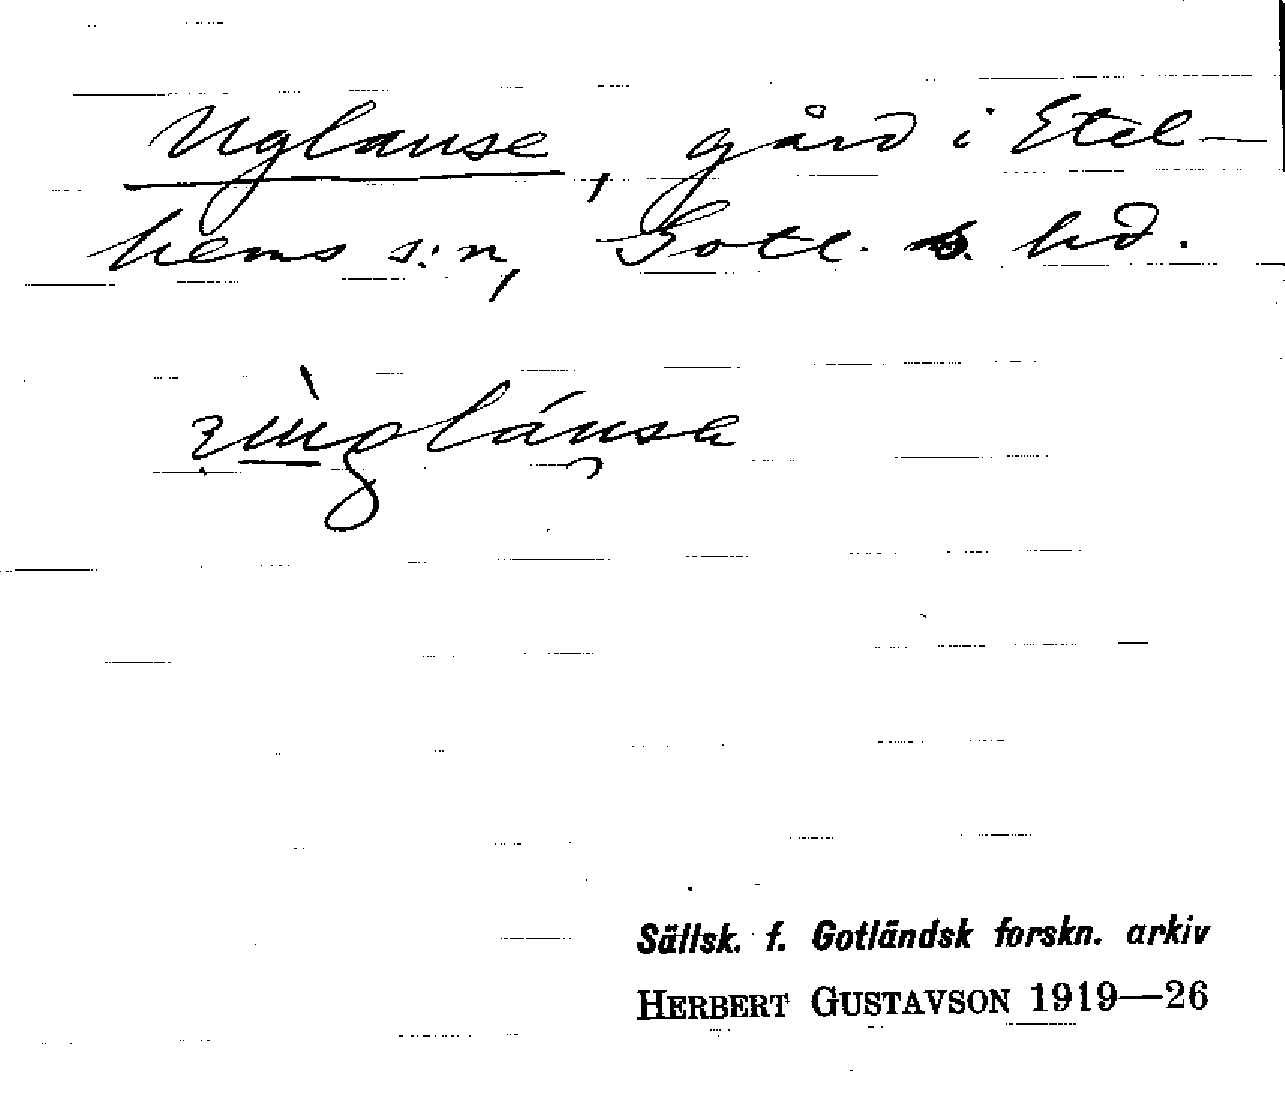 Uglause, gård i Etel-
hems s:n, Gotl. s. hd.
Sällsk. f. Gotländsk forskn. arkiv
HERBERT GUSTAVSON 1919—26